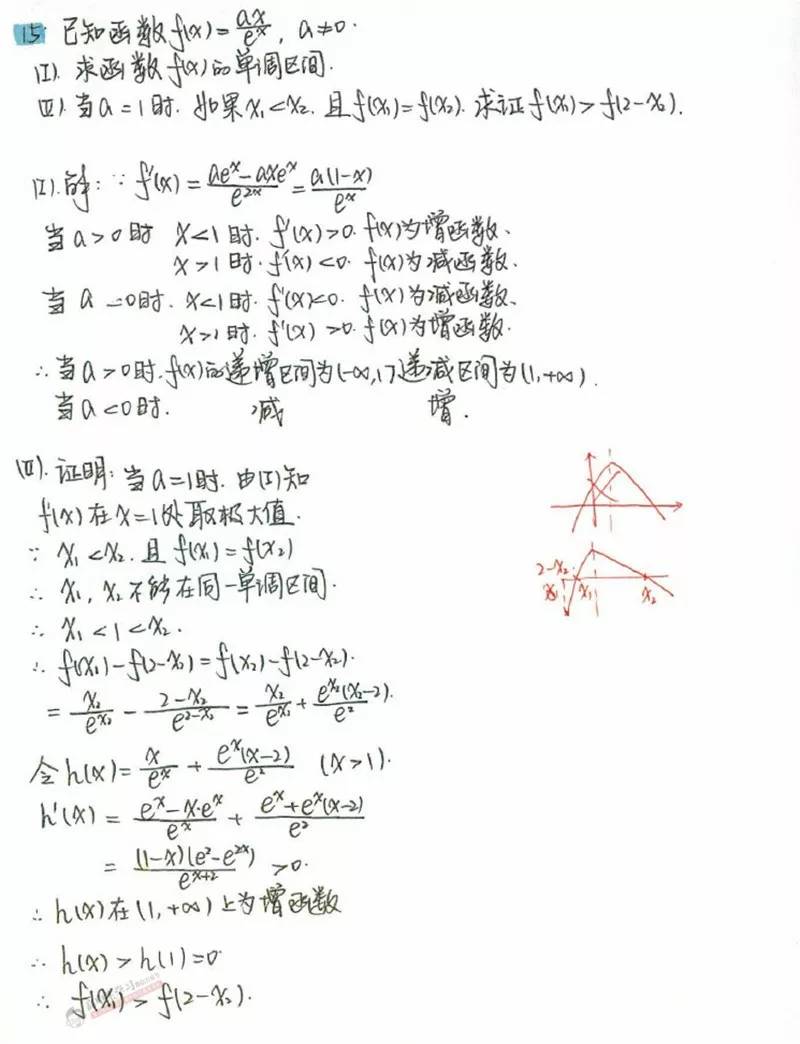 15. 已知函数f(x)=ax/e^x, a≠0.
(I). 求函数f(x)的单调区间.
(II). 当a=1时. 如果x₁<x₂. 且f(x₁)=f(x₂). 求证f(x₁)>f(2-x₂).
(I).解: ∵ f'(x)=(ae^x-axe^x)/e^(2x)=a(1-x)/e^x
当a>0时 x<1时. f'(x)>0. f(x)为增函数.
x>1时. f'(x)<0. f(x)为减函数.
当a =0时. x<1时. f'(x)<0. f(x)为减函数.
x>1时. f'(x)>0. f(x)为增函数.
∴当a>0时. f(x)的递增区间为(-∞,1) 递减区间为(1,+∞).
当a<0时. 减 增.
(II). 证明: 当a=1时. 由(I)知
f(x)在x=1处取极大值.
∵ x₁<x₂. 且f(x₁)=f(x₂)
∴ x₁, x₂不能在同一单调区间.
∴ x₁<1<x₂.
∴ f(x₁)-f(2-x₂)=f(x₂)-f(2-x₂).
= x₂/e^(x₂) - (2-x₂)/e^(2-x₂) = x₂/e^(x₂) + e^(x₂)(x₂-2)/e².
令h(x)= x/e^x + e^x(x-2)/e² (x>1).
h'(x) = (e^x-x·e^x)/e^x + (e^x+e^x(x-2))/e²
= (1-x)(e²-e^(2x))/e^(x+2) >0.
∴ h(x)在(1,+∞)上为增函数
∴ h(x)>h(1)=0.
∴ f(x₁)>f(2-x₂).
2-x₂
x₁ x₂